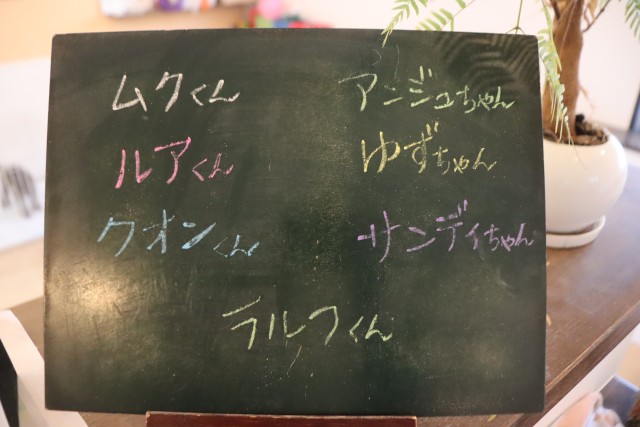 ムクくん
アンジュちゃん
ルアくん
ゆずちゃん
クオンくん
サンディちゃん
ラルフくん